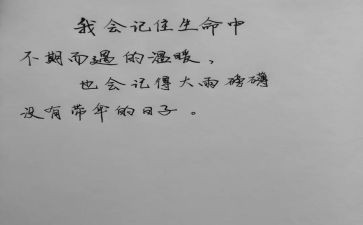 我会记住生命中
不期而遇的温暖，
也会记得大雨磅礴
没有带伞的日子。